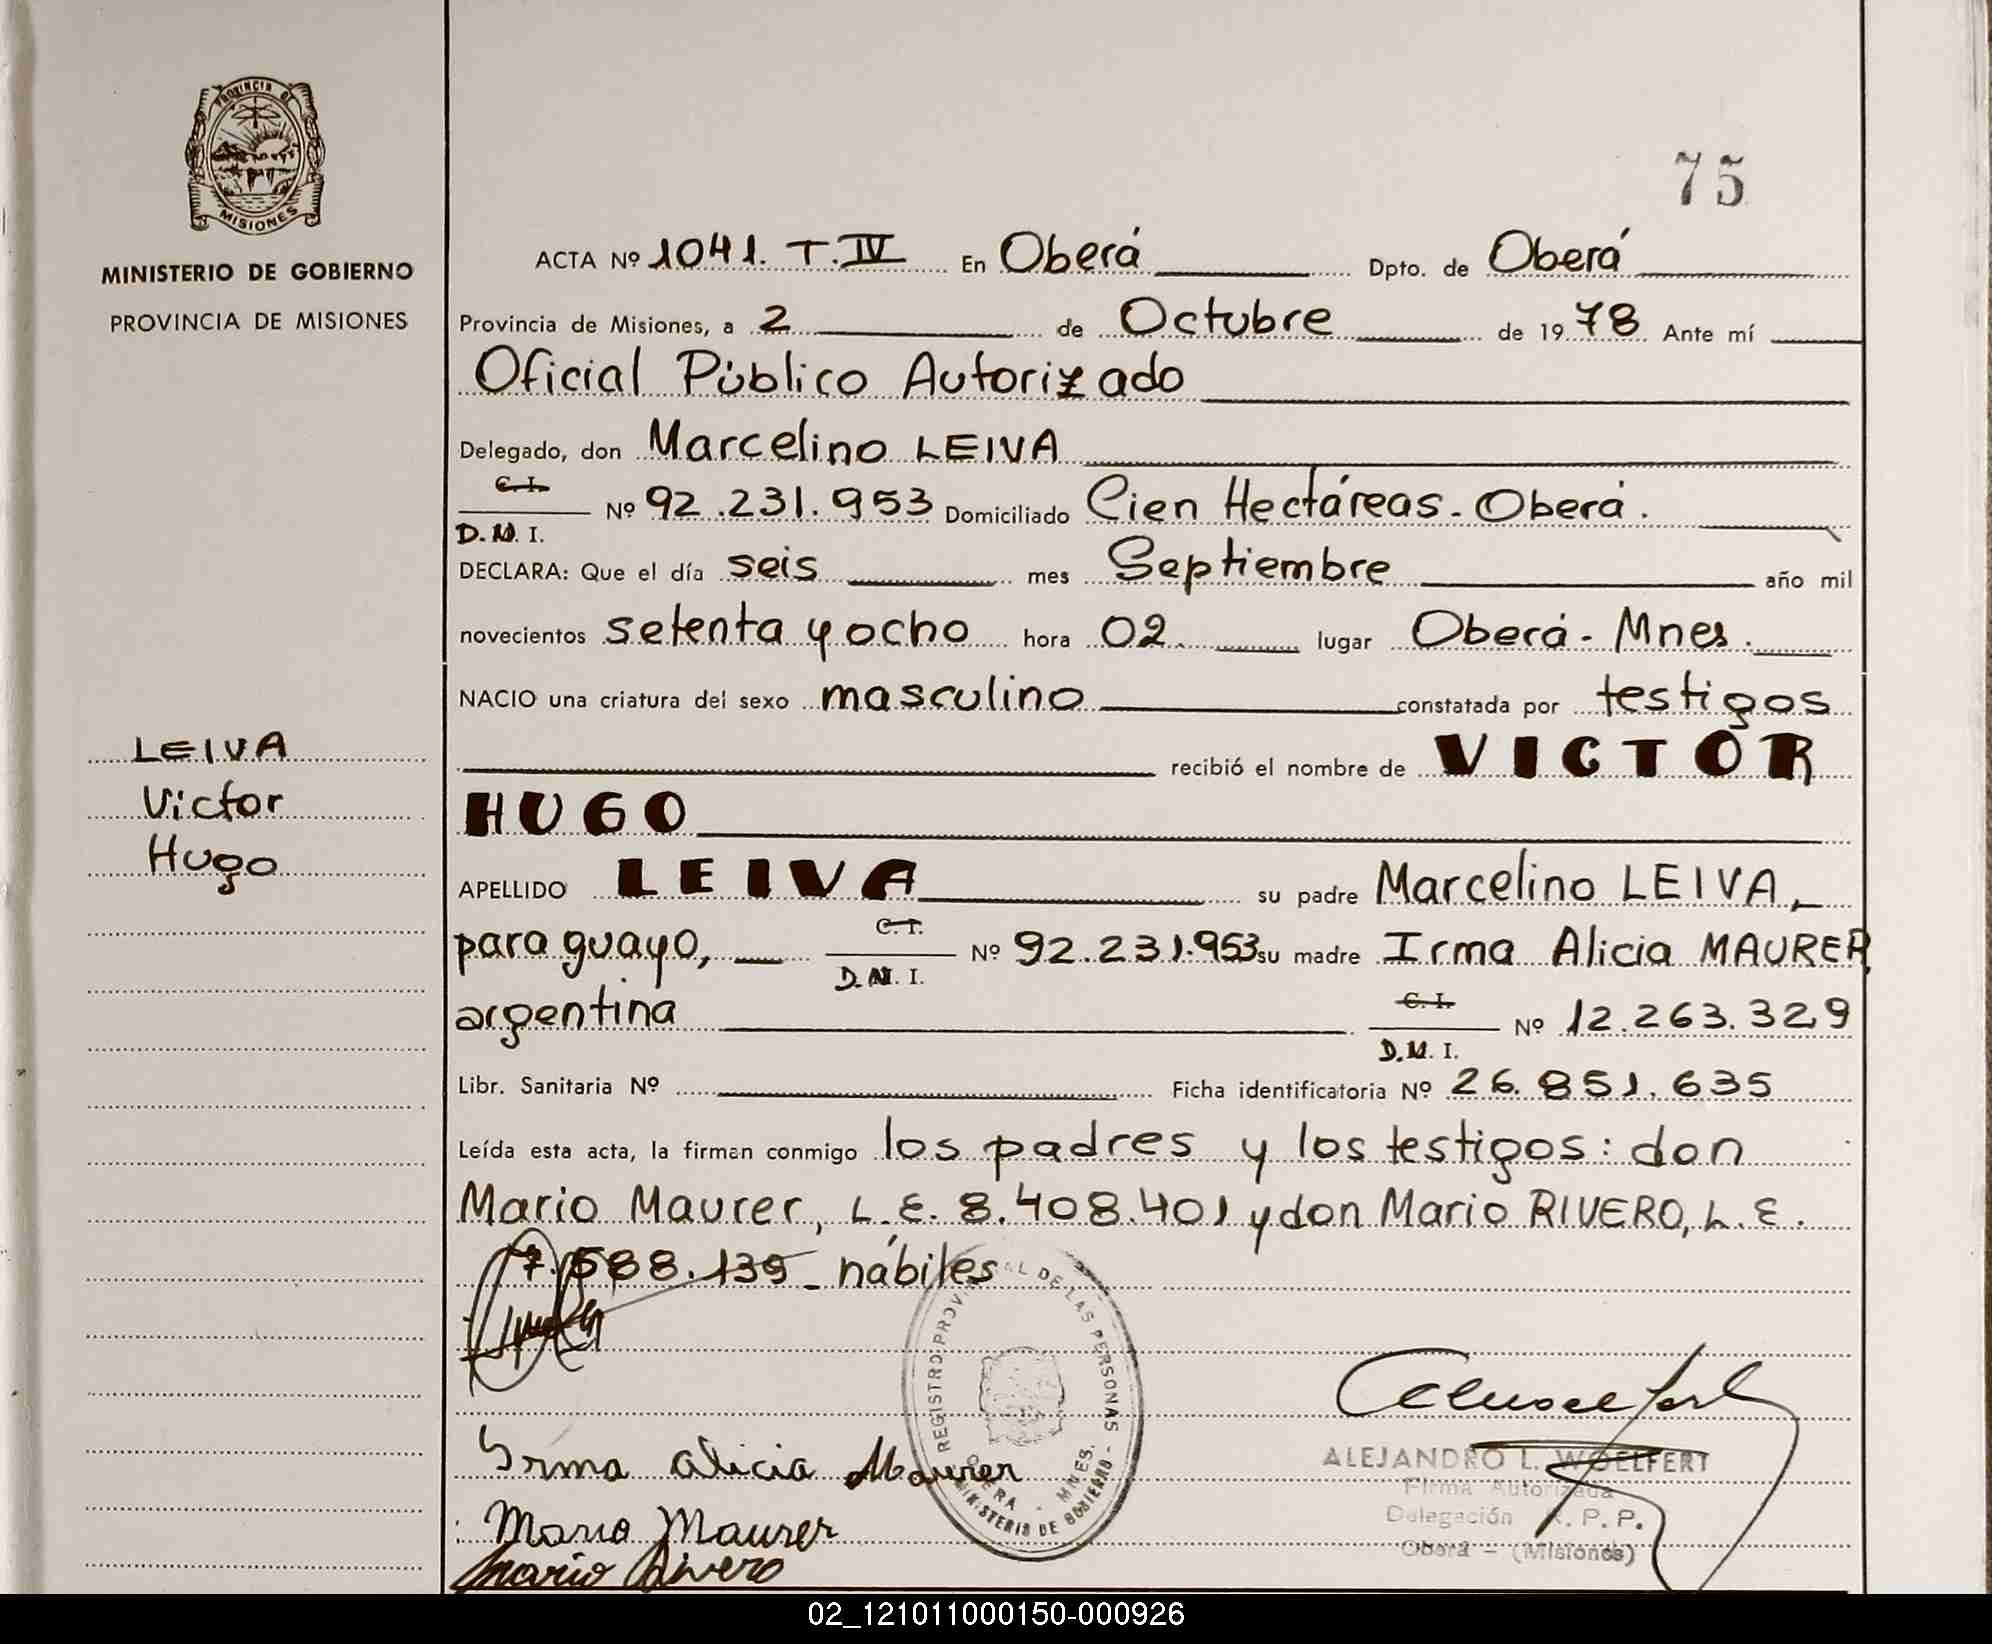 PROVINCIA DE
MISIONES
MINISTERIO DE GOBIERNO
PROVINCIA DE MISIONES
75
ACTA Nº 1041. T. IV En Oberá Dpto. de Oberá
Provincia de Misiones, a 2 de Octubre de 1978 Ante mí
Oficial Público Autorizado
Delegado, don Marcelino LEIVA
C. I.
Nº 92.231.953 Domiciliado Cien Hectáreas. Oberá.
D. N. I.
DECLARA: Que el día seis mes Septiembre año mil
novecientos setenta y ocho hora 02 lugar Oberá - Mnes.
NACIO una criatura del sexo masculino constatada por testigos
recibió el nombre de VICTOR
HUGO
LEIVA
Victor
Hugo
APELLIDO LEIVA su padre Marcelino LEIVA,
C. I.
paraguayo, Nº 92.231.953 su madre Irma Alicia MAURER,
D. N. I.
argentina C. I. Nº 12.263.329
D. N. I.
Libr. Sanitaria Nº Ficha identificatoria Nº 26.851.635
Leída esta acta, la firman conmigo los padres y los testigos: don
Mario Maurer, L.E. 8.408.401 y don Mario RIVERO, L.E.
7.588.139 - hábiles
REGISTRO PROVINCIAL DE LAS PERSONAS -
OBERA - MNES.
MINISTERIO DE GOBIERNO
Irma Alicia Maurer
Mario Maurer
Mario Rivero
ALEJANDRO L. WOELFERT
Firma Autorizada
Delegación R. P. P.
Oberá - (Misiones)
02_121011000150-000926